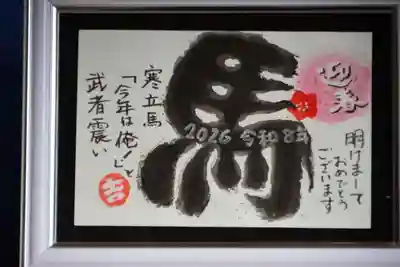 迎春
明けまして
おめでとう
ございます
馬
2026 令和8年
寒立馬
「今年は俺！」と
武者震い
吉